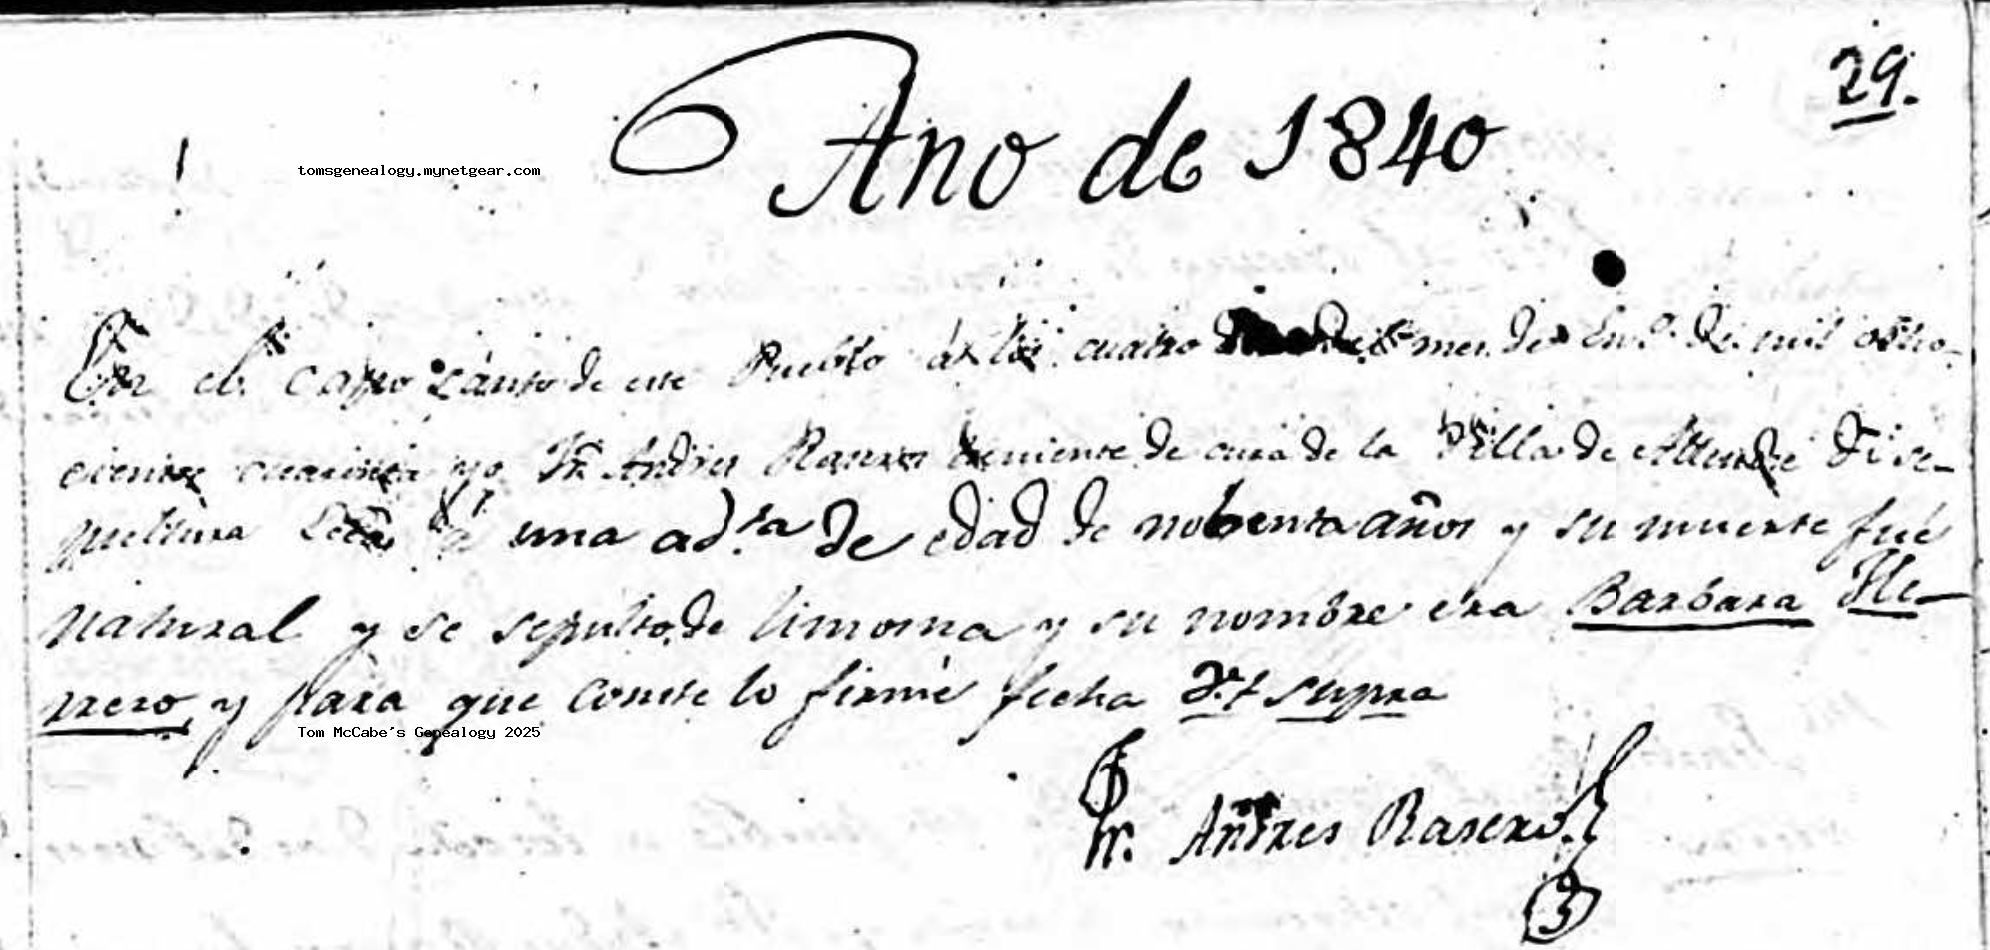 29.
Ano de 1840
tomsgenealogy.mynetgear.com
En el Campo Santo de este Pueblo á los cuatro del mes de En.o de mil ocho-
cientos cuarenta yo Fr. Andres Rasero teniente de cura de la Villa de Allende di se-
pultura Ecca á una ad.ta de edad de nobenta años y su muerte fué
natural y se sepultó de limosna y su nombre era Barbara He-
rrero, y para que conste lo firmé fecha Ut supra
Tom McCabe's Genealogy 2025
Fr. Andres Rasero